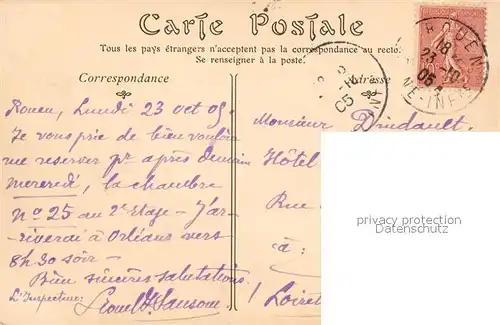 Carte Postale
Tous les pays étrangers n'acceptent pas la correspondance au recto.
Se renseigner à la poste.
Correspondance
Adresse
ROUEN
18
23-10
05
NE-INF
Rouen, Lundi 23 oct 05.
Je vous prie de bien vouloir
me réserver pr après demain
mercredi, la chambre
No 25 au 2e Etage - J'ar-
riverai à Orléans vers
8h30 soir -
Bien sincères salutations.
L'Inspecteur:
Monsieur
Hôtel
Rue
à:
Loiret
privacy protection
Datenschutz